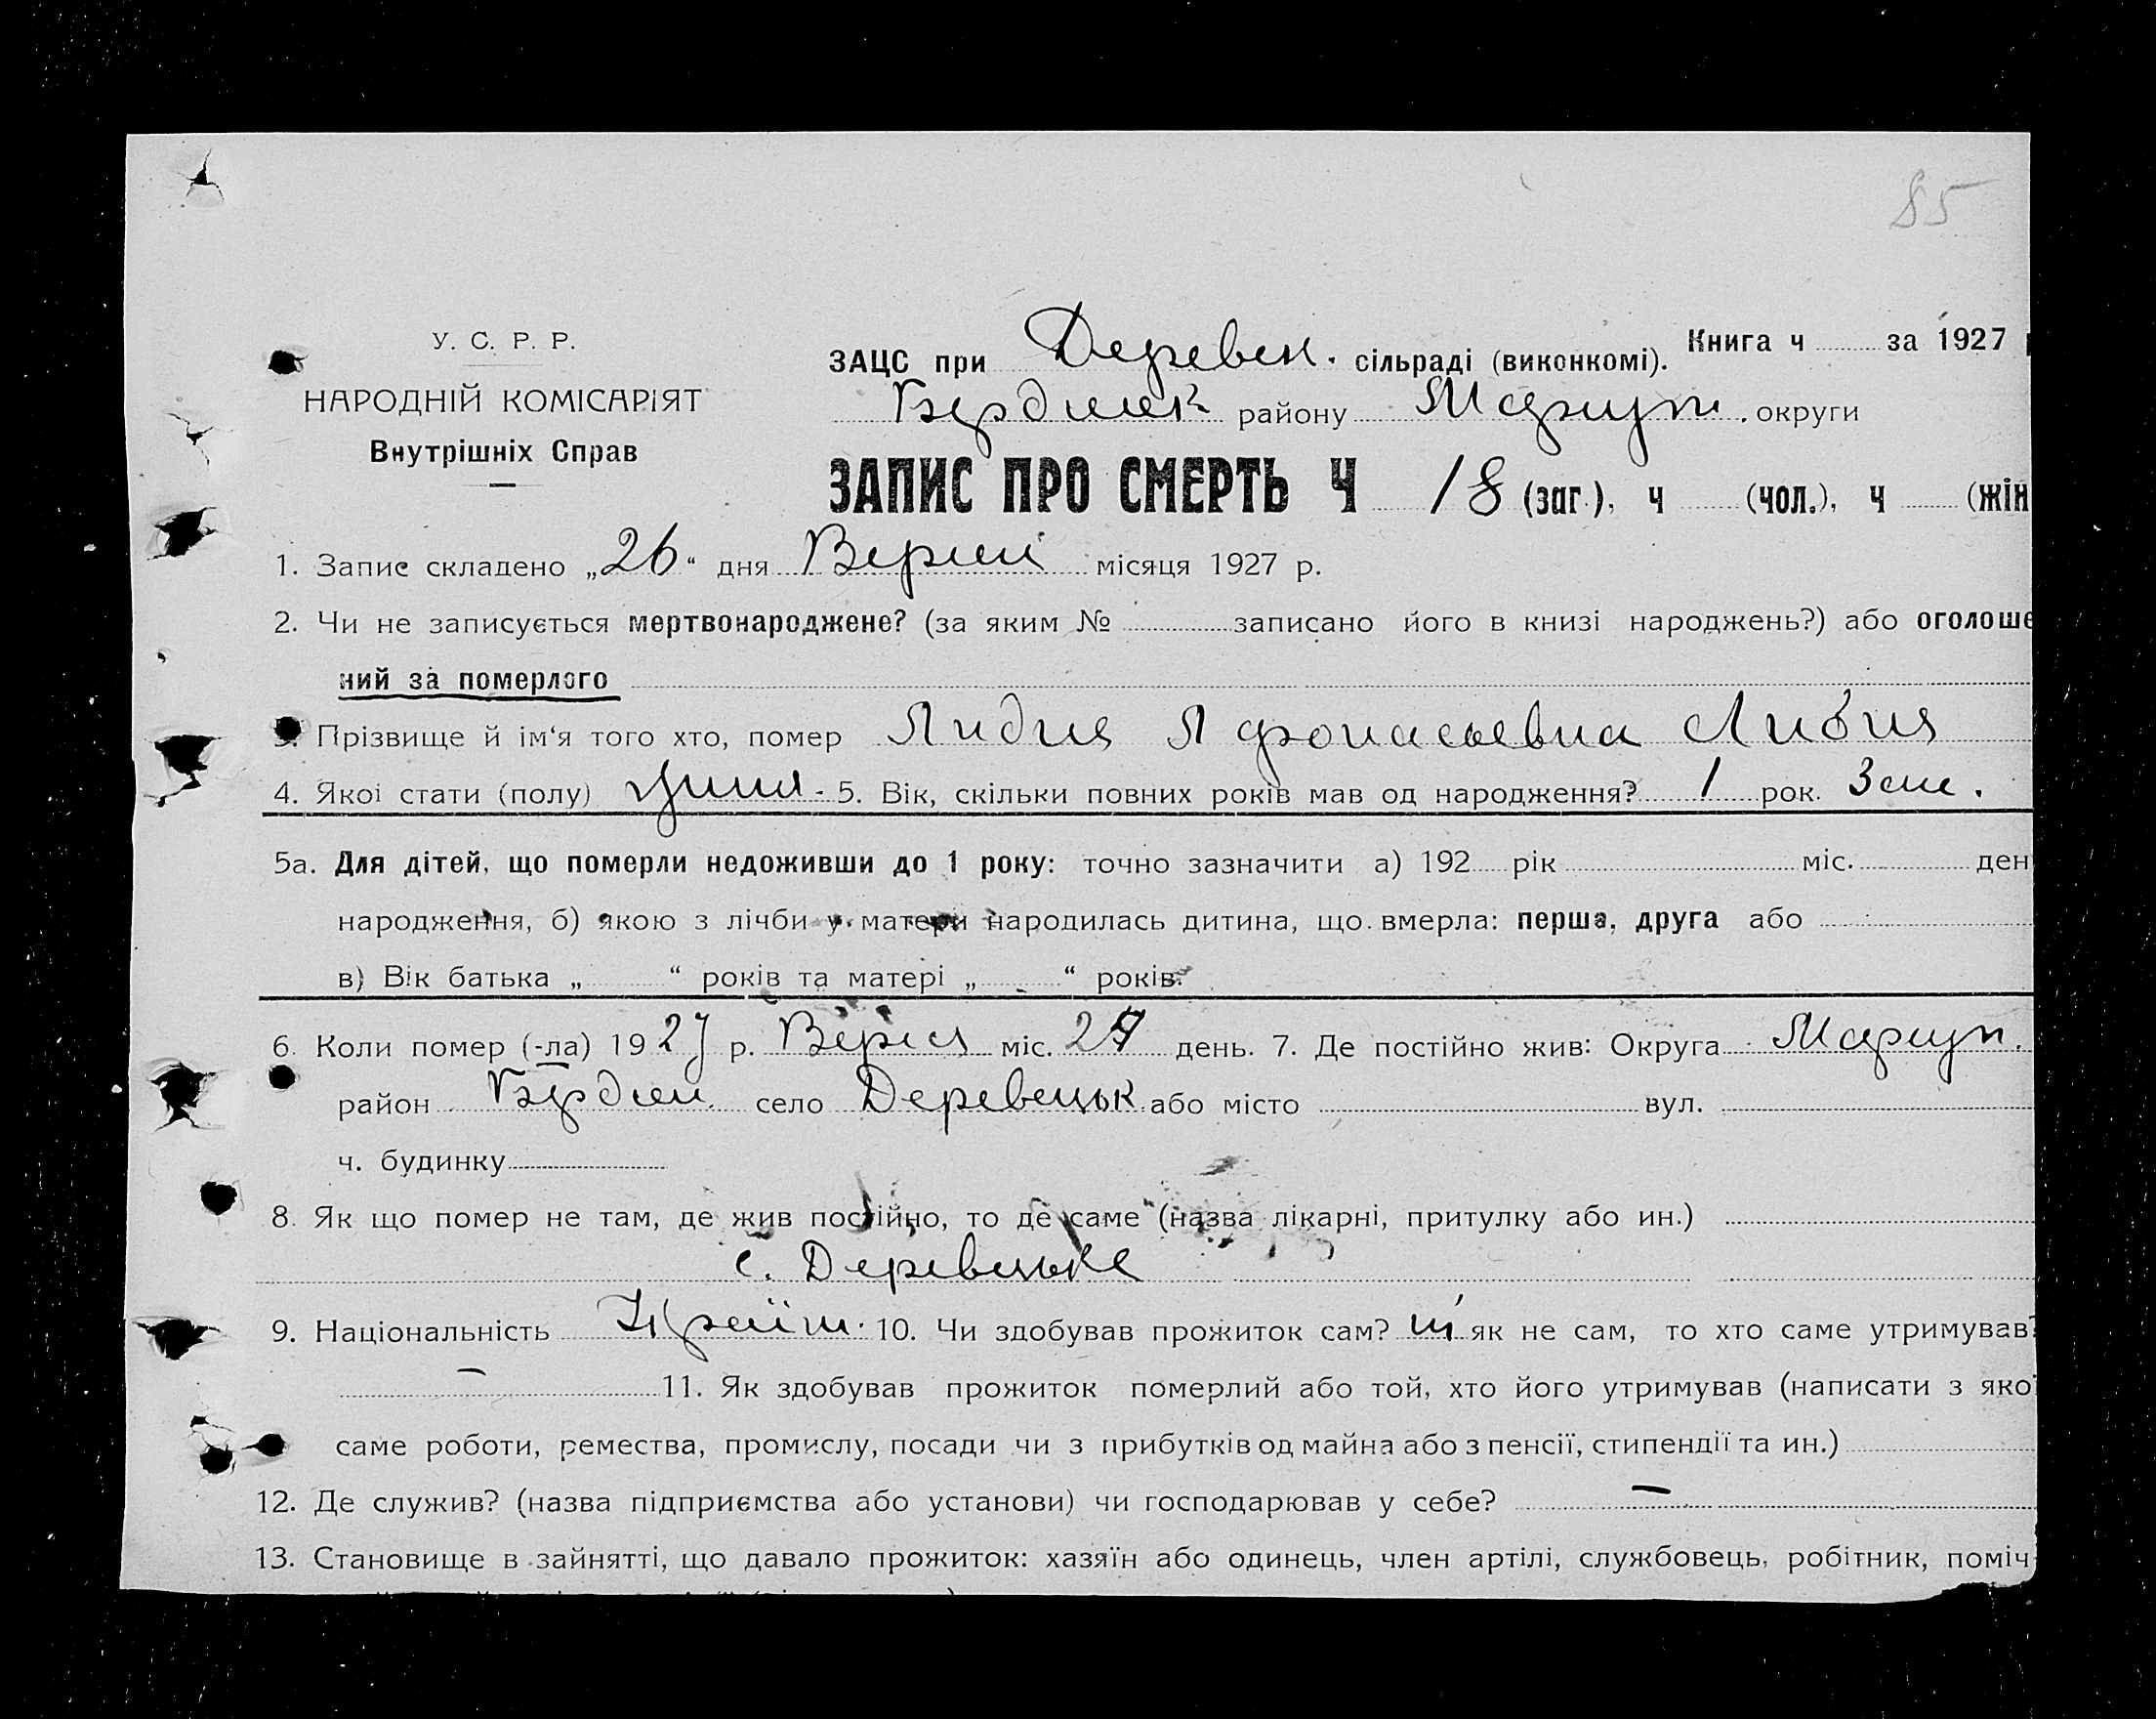 85
У. С. Р. Р.
НАРОДНІЙ КОМІСАРІЯТ
Внутрішніх Справ
ЗАЦС при Деревен. сільраді (виконкомі). Книга ч за 1927
району Маріуп. округи
ЗАПИС ПРО СМЕРТЬ Ч 18 (заг.), ч (чол.), ч (жін
1. Запис складено „26“ дня місяця 1927 р.
2. Чи не записується мертвонароджене? (за яким № записано його в книзі народжень?) або оголоше
ний за померлого
3. Прізвище й ім'я того хто, помер Лидия Афонасьевна
4. Якої стати (полу) 5. Вік, скільки повних років мав од народження? 1 рок.
5а. Для дітей, що померли недоживши до 1 року: точно зазначити а) 192 рік міс. ден
народження, б) якою з лічби у матери народилась дитина, що вмерла: перша, друга або
в) Вік батька „ “ років та матері „ “ років.
6. Коли помер (-ла) 1927 р. міс. день. 7. Де постійно жив: Округа Маріуп.
район село Деревецьк. або місто вул.
ч. будинку
8. Як що помер не там, де жив постійно, то де саме (назва лікарні, притулку або ин.)
с. Деревецьке
9. Національність 10. Чи здобував прожиток сам? ні як не сам, то хто саме утримував?
— 11. Як здобував прожиток померлий або той, хто його утримував (написати з якої
саме роботи, ремества, промислу, посади чи з прибутків од майна або з пенсії, стипендії та ин.)
12. Де служив? (назва підприємства або установи) чи господарював у себе? —
13. Становище в зайнятті, що давало прожиток: хазяїн або одинець, член артілі, службовець, робітник, поміч